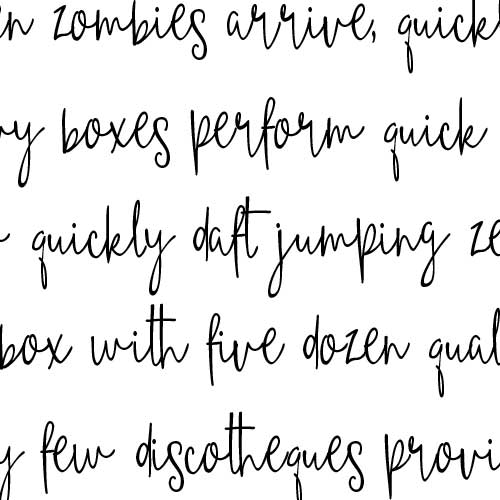 en zombies arrive, quick
vy boxes perform quick
quickly daft jumping ze
box with five dozen qual
y few discotheques provi